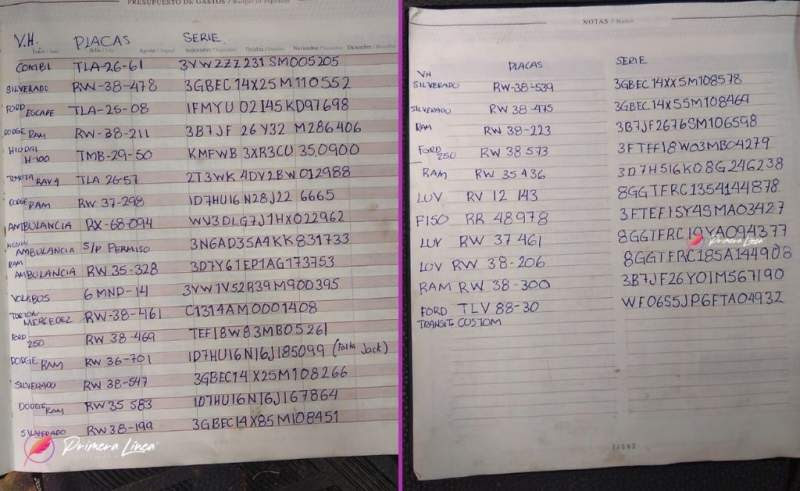 PRESUPUESTO DE GASTOS
V.H. PLACAS SERIE
COMBI TLA-26-61 3VWZZZ231SM005205
SILVERADO RW-38-478 3GBEC14X25M110552
FORD ESCAPE TLA-25-08 1FMYU02145KD97698
DODGE RAM RW-38-211 3B7JF26Y32M286406
H-100 TMB-29-50 KMFWB3XR3CU350900
TOYOTA RAV4 TLA 26-57 2T3WK4DV2BW012988
DODGE RAM RW 37-298 1D7HU16N28J226665
AMBULANCIA RX-68-094 WV3DLG7J1HX022962
AMBULANCIA S/P PERMISO 3N6AD35A4KK831733
RAM AMBULANCIA RW 35-328 3D7Y61EP1AG173753
VOLKBUS 6 MND-14 3VW1V52R39M900395
MERCEDEZ RW-38-461 C1314AM0001408
FORD 250 RW 38-469 TEF18W83MB05261
DODGE RAM RW 36-701 1D7HU16N16J185099 (Falta Jack)
SILVERADO RW 38-547 3GBEC14X25M108266
DODGE RAM RW 35 583 1D7HU16N16J167864
SILVERADO RW 38-199 3GBEC14X85M108451
Primera Línea
NOTAS
VH PLACAS SERIE
SILVERADO RW-38-539 3GBEC14XX5M108578
SILVERADO RW 38-475 3GBEC14X55M108469
RAM RW 38-223 3B7JF2676SM106598
FORD 250 RW 38 573 3FTEF18W03MB04279
RAM RW 35 436 3D7H516K08G246238
LUV RV 12 143 8GGTFRC1354144878
F150 RR 48978 3FTEF15Y4SMA03427
LUV RW 37 461 8GGTFRC19YA094377
Primera Línea
LUV RW 38-206 8GGTFRC185A144908
RAM RW 38-300 3B7JF26Y01M567190
FORD TLV 88-30 WF06S5JP6FTA04932
TRANSIT CUSTOM